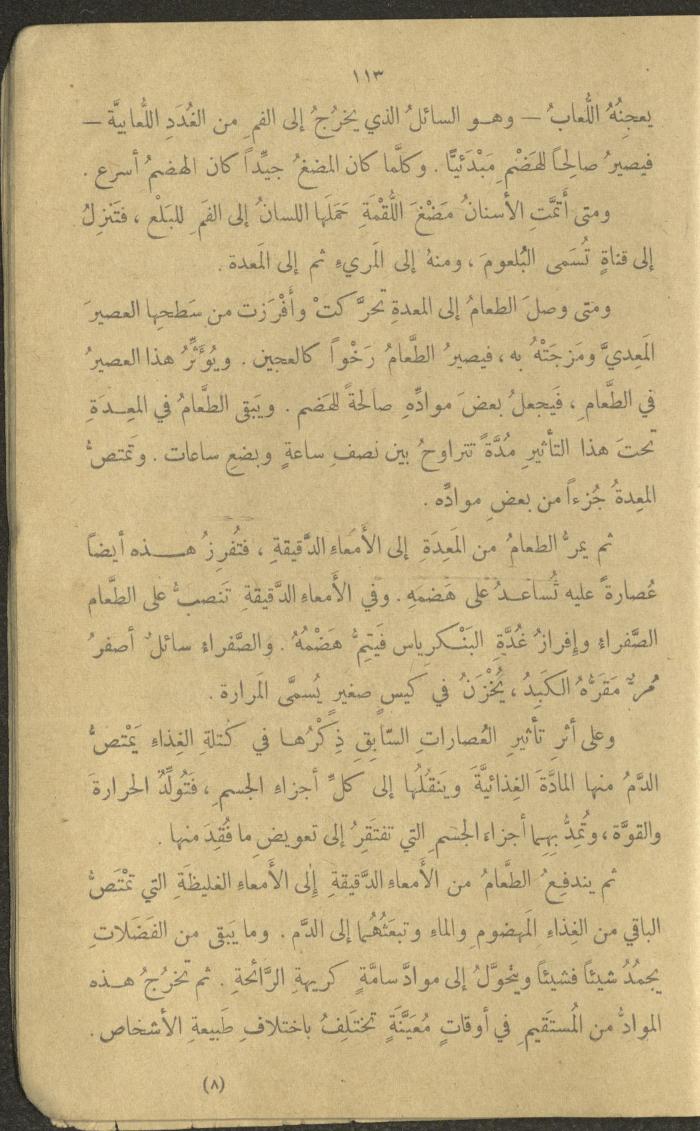 ١١٣
يعجِنُهُ اللُّعابُ — وهو السائلُ الذي يخرُجُ إلى الفمِ من الغُدَدِ اللُّعابيَّة —
فيصيرُ صالحاً للهَضْمِ مَبْدَئيًّا . وكلَّما كان المضغُ جيِّداً كان الهضمُ أسرع .
ومتى أَتمَّتِ الأسنانُ مَضْغَ اللُّقْمَةِ حَمَلَها اللسانُ إلى الفَمِ للبَلْعِ ، فتَنزِلُ
إلى قناةٍ تُسَمى البُلعومَ ، ومنهُ إلى المَريءِ ثم إلى المَعدة .
ومتى وصلَ الطعامُ إلى المعدةِ تحرَّكتْ وأَفْرَزت من سَطحِها العصيرَ
المَعِديَّ ومَزجَتْهُ به ، فيصيرُ الطَّعامُ رَخْواً كالعجين . ويُؤثِّرُ هذا العصيرُ
في الطَّعامِ ، فيَجعلُ بعضَ موادِّهِ صالحةً للهَضم . ويَبقى الطَّعامُ في المعِدَةِ
تحتَ هذا التأثيرِ مُدَّةً تتراوحُ بين نصفِ ساعةٍ وبضعِ ساعات . وتَمتصُّ
المعِدةُ جُزءاً من بعضِ موادِّه .
ثم يمرُّ الطعامُ من المَعِدَةِ إلى الأَمَعاءِ الدَّقيقةِ ، فتُفرِزُ هذه أيضاً
عُصارةً عليه تُساعدُ على هَضمهِ . وفي الأَمعاءِ الدَّقيقةِ تَنصبُّ على الطَّعام
الصَّفراءُ وإفرازُ غُدَّةِ البَنْكرياس فيَتِمُّ هَضْمُهُ . والصَّفراءُ سائلٌ أصفرُ
مُرٌّ مَقَرُّهُ الكَبِدُ ، يُخْزَنُ في كيسٍ صغيرٍ يُسمَّى المَرارة .
وعلى أثرِ تأثيرِ العُصاراتِ السّابقِ ذِكْرُها في كُتلةِ الغِذاءِ يَمْتصُّ
الدَّمُ منها المادَّةَ الغِذائيَّةَ ويَنقُلُها إلى كلِّ أجزاءِ الجسمِ ، فتُولِّدُ الحرارةَ
والقوَّة ، وتُمِدُّ بهما أجزاءَ الجسمِ التي تفتَقِرُ إلى تعويضِ ما فُقِدَ منها .
ثم يندفِعُ الطَّعامُ من الأَمعاءِ الدَّقيقةِ إلى الأَمعاءِ الغليظَةِ التي تَمْتَصُّ
الباقي من الغِذاءِ المَهضومِ والماءِ وتبعَثُهُما إلى الدَّم . وما يَبقى من الفَضَلاتِ
يجمُدُ شيئاً فشيئاً ويتحوَّلُ إلى موادَّ سامَّةٍ كريهةِ الرَّائحةِ . ثم تخرُجُ هذه
الموادُّ من المُستَقيمِ في أوقاتٍ مُعيَّنَةٍ تختَلِفُ باختلافِ طَبيعةِ الأشخاص .
(٨)